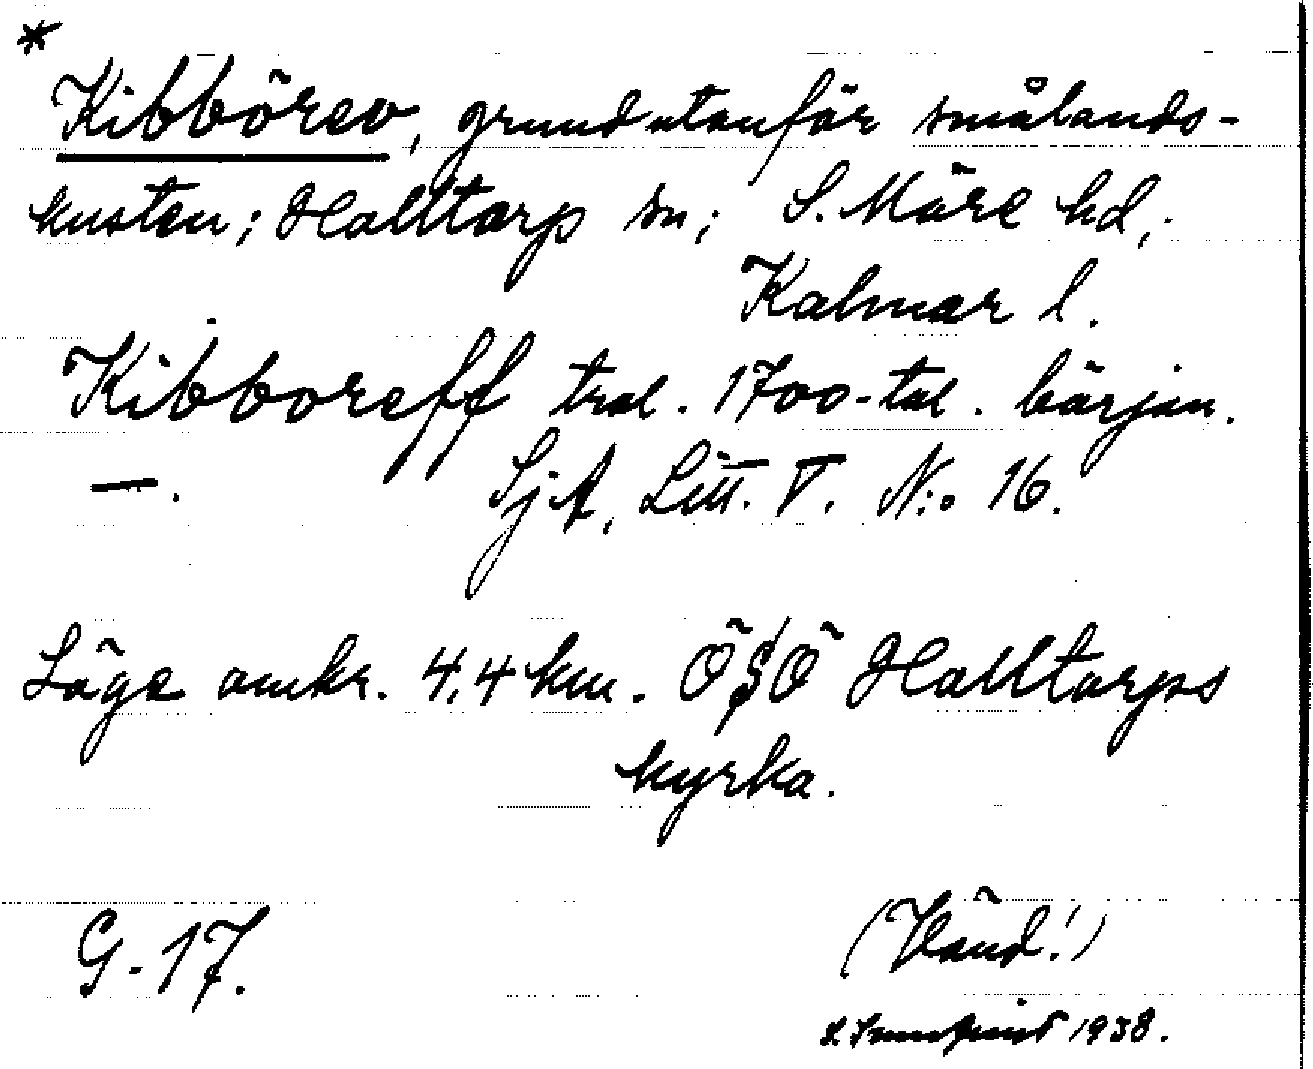 *
Kibbörev, grund utanför smålands-
kusten; Halltorp sn; S. Möre hd,
Kalmar l.
Kibboreff trol. 1700-tal. början.
—. SjA, Litt. V. N:o 16.
Läge omkr. 4,4 km. ÖSÖ Halltorps
kyrka.
G-17.
(Vänd!)
1938.